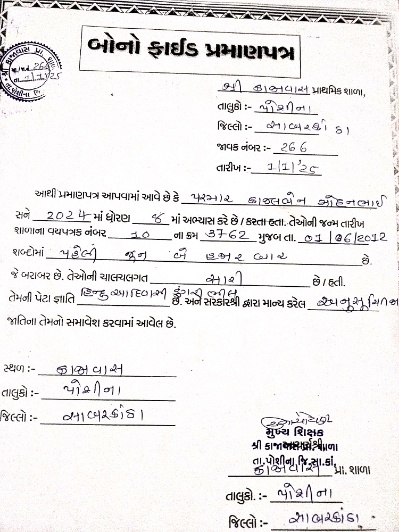 બોનો ફાઈડ પ્રમાણપત્ર
શ્રી કાજાવાસ પ્રાથમિક શાળા,
તાલુકો :- પોશીના
જિલ્લો :- સાબરકાંઠા
જાવક નંબર :- 266
તારીખ :- 1/1/25
આથી પ્રમાણપત્ર આપવામાં આવે છે કે પરમાર કાજલબેન મોહનભાઈ
સને 2024 માં ધોરણ 8 માં અભ્યાસ કરે છે / કરતા હતા. તેઓની જન્મ તારીખ
શાળાના વયપત્રક નંબર 10 ના ક્રમ 3762 મુજબ તા. 01/06/2012
શબ્દોમાં પહેલી જૂન બે હજાર બાર છે.
જે બરાબર છે. તેઓની ચાલચલગત સારી છે / હતી.
તેમની પેટા જ્ઞાતિ હિન્દુ આદિવાસી ડુંગરી ભીલ છે. અને સરકારશ્રી દ્વારા માન્ય કરેલ અનુસૂચિત
જાતિના તેમનો સમાવેશ કરવામાં આવેલ છે.
સ્થળ :- કાજાવાસ
તાલુકો :- પોશીના
જિલ્લો :- સાબરકાંઠા
મુખ્ય શિક્ષક
શ્રી કાજાવાસ પ્રા. શાળા
તા. પોશીના, જિ. સા.કાં.
કાજાવાસ પ્રા. શાળા
તાલુકો. :- પોશીના
જિલ્લો :- સાબરકાંઠા